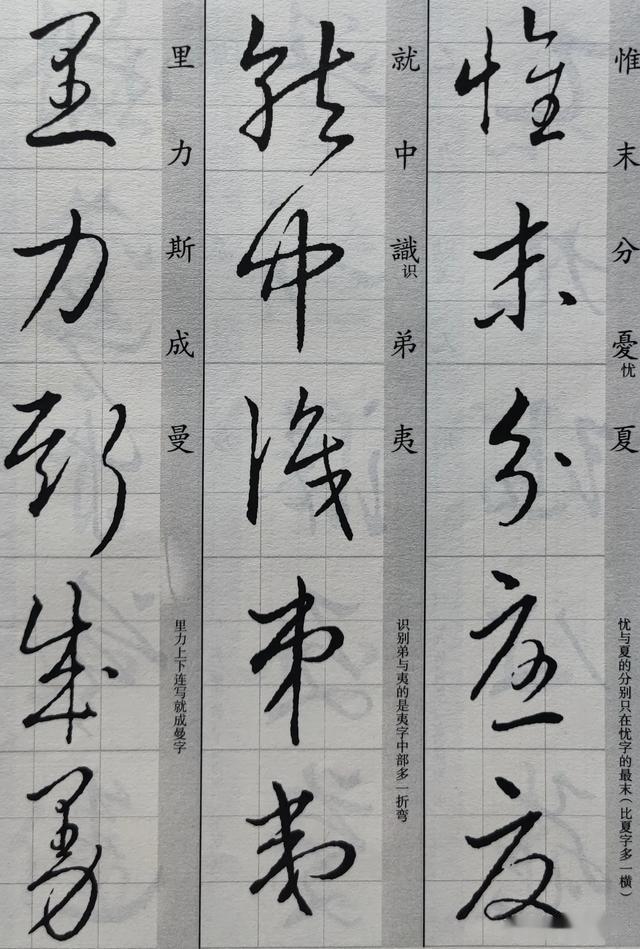 惟末分憂夏
忧
忧与夏的分别只在忧字的最末（比夏字多一横）
惟末分憂夏
就中識弟夷
识
识别弟与夷的是夷字中部多一折弯
就中識弟夷
里力斯成曼
里力上下连写就成曼字
里力斯成曼